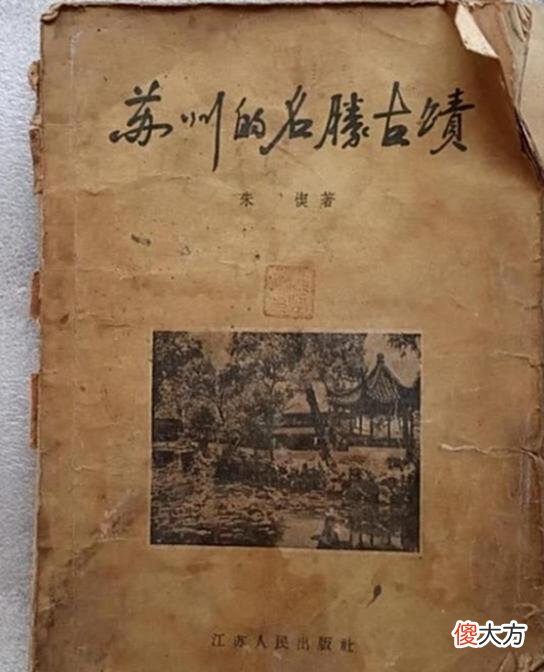 苏州的名勝古蹟
朱偰著
江苏人民出版社
傻大方